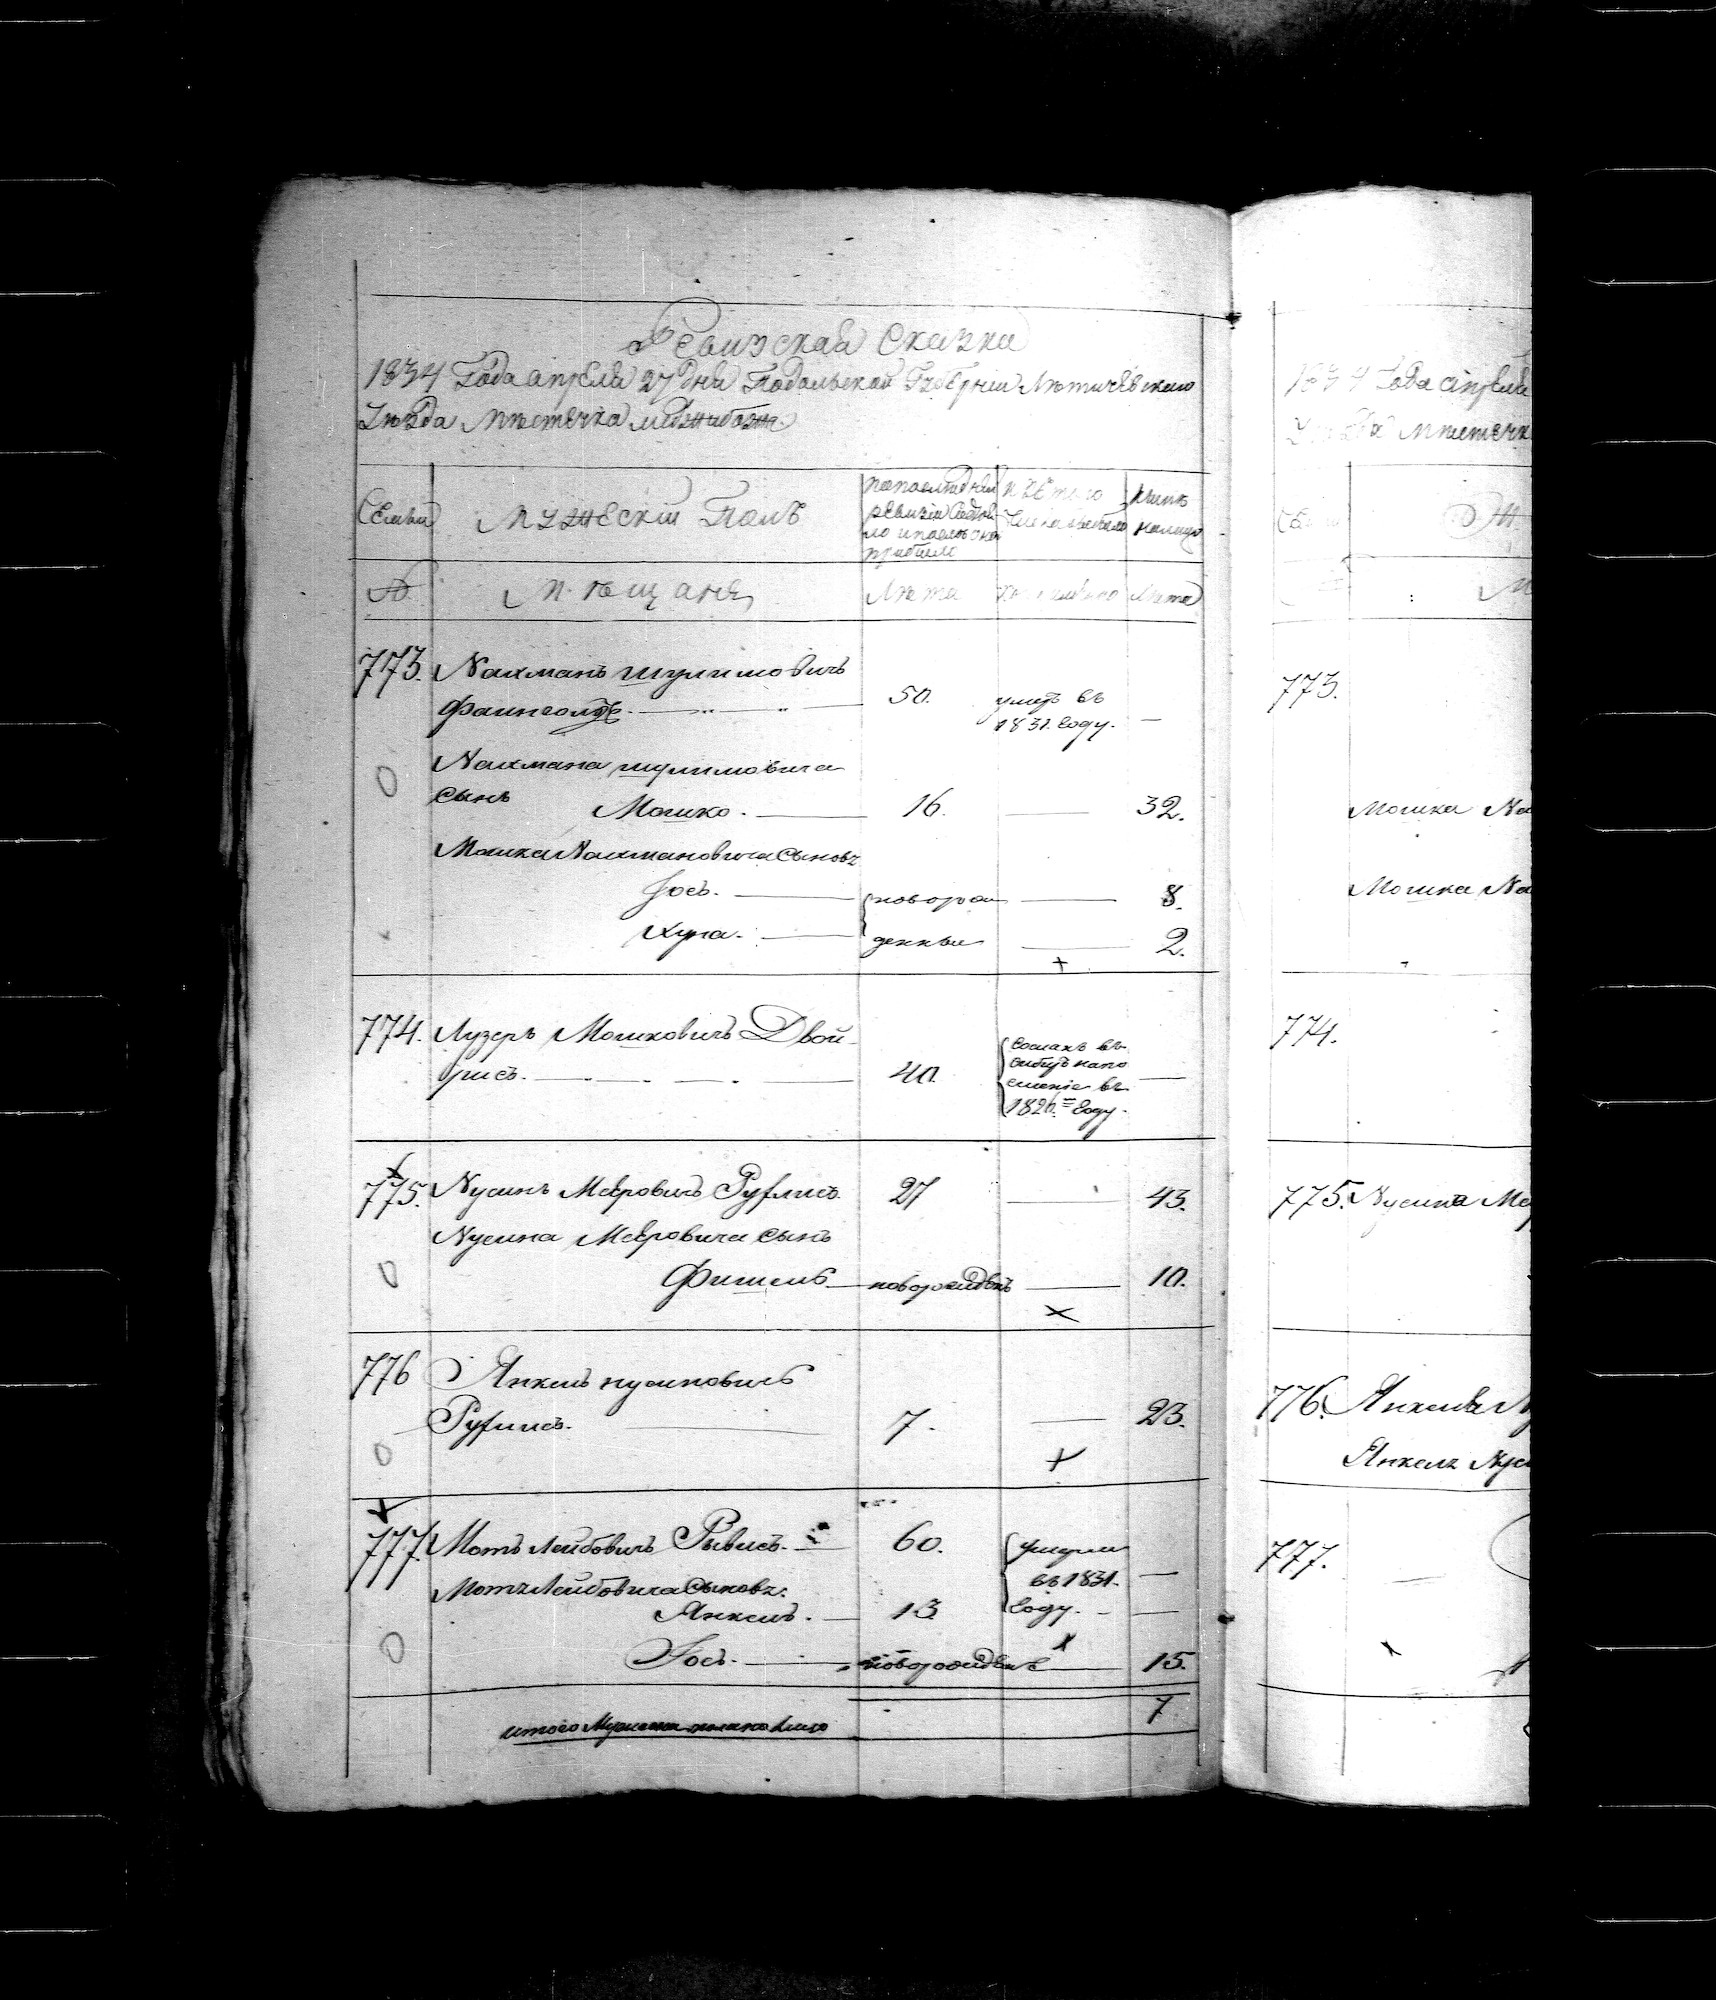 Ревизская Сказка
1834 Года апреля 27 дня Подольской Губернiи Лѣтичевского
Уѣзда Мѣстечка Меджибожа
Семьи
Мужескiй Полъ
по последней
ревизiи состоя-
ло и после оной
прибыло
Изъ того
числа выбыло
Нынѣ
налицо
№.
Мѣщане
Лѣта
Лѣта
773. Нахманъ Шулимовичъ
Фаинголтъ. 50. умеръ въ
1831. году. —
Нахмана Шулимовича
сынъ
Мошко. 16. — 32.
Мошка Нахмановича сыновъя
Iось. новорож 8.
Хуна. денные 2.
774. Лузеръ Мошковичъ Двой-
рисъ. 40. сосланъ въ
сибирь на по
селенiе въ
1820. году.
775. Нусинъ Меeровичъ Руфлисъ 27 — 43.
Нусина Меeровича сынъ
Фишель новорожденъ — 10.
776 Янкель Нусиновичъ
Руфлисъ. 7. — 23.
777. Моть Лейбовичъ Рывисъ. 60. умерли
въ 1831.
году.
Мотя Лейбовича сыновья:
Янкель. 13 —
Iось. новорожденъ — 15.
итого Мужеска пола на лицо 7
1834 Года апреля
Уѣзда Мѣстечк
773.
Мошка На
Мошка На
774.
775. Нусина Ме
776. Янкеля Н
Янкеля Нус
777.